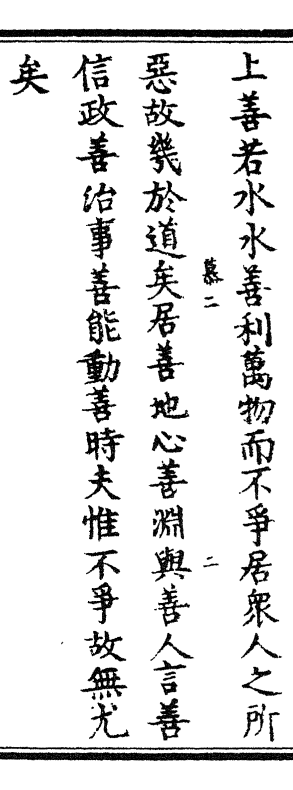 上善若水水善利萬物而不爭居衆人之所
慕二 二
惡故幾於道矣居善地心善淵與善人言善
信政善治事善能動善時夫惟不爭故無尤
矣